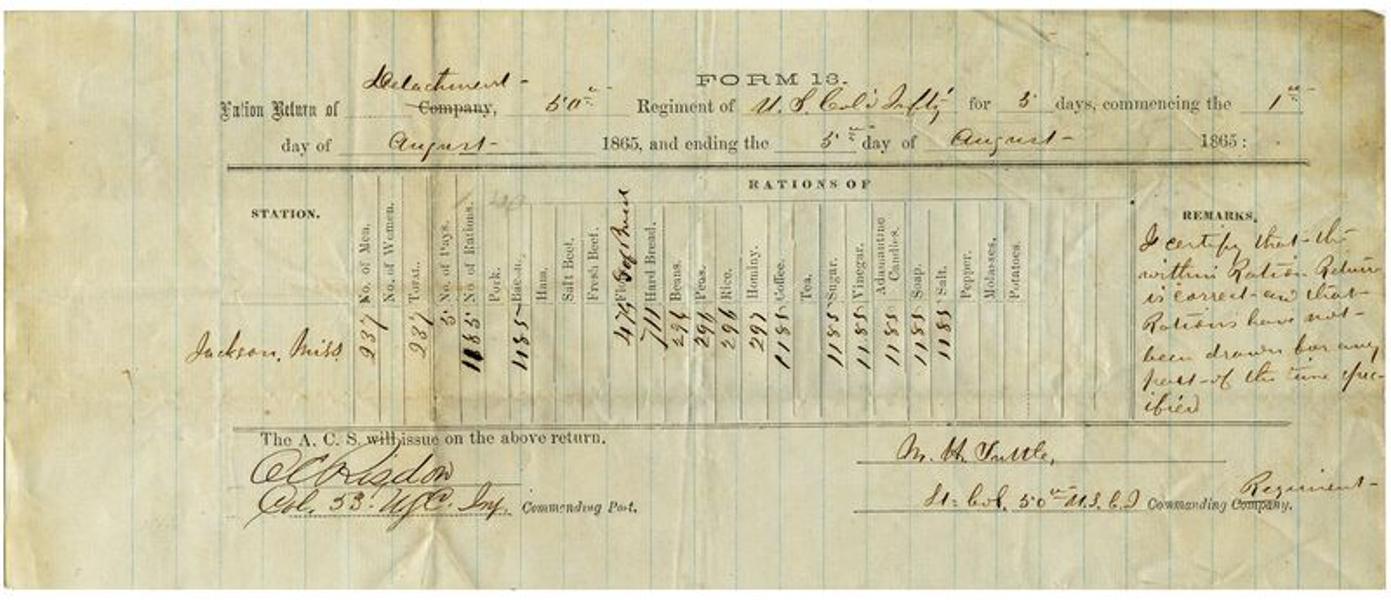 FORM 13.
Detachment
Ration Return of Company, 50th Regiment of U. S. Col'd Infty for 5 days, commencing the 1st
day of August 1865, and ending the 5th day of August 1865:
RATIONS OF
STATION.
No. of Men.
No. of Women.
TOTAL.
No. of Days.
No. of Rations.
Pork.
Bacon.
Ham.
Salt Beef.
Fresh Beef.
Hard Bread.
Beans.
Peas.
Rice.
Hominy.
Coffee.
Tea.
Sugar.
Vinegar.
Adamantine Candles.
Soap.
Salt.
Pepper.
Molasses.
Potatoes.
REMARKS.
Jackson, Miss. 237 237 5 1185 1185 474 711 296 296 296 297 1185 1185 1185 1185 1185 1185
I certify that the
within Ration Return
is correct and that
Rations have not
been drawn for any
part of the time spec-
ified
The A. C. S. will issue on the above return.
Risdon
Col. 53. U.S.C. Inf. Commanding Post.
M. H. Tuttle,
Regiment
Lt. Col. 50th U.S.C.I Commanding Company.